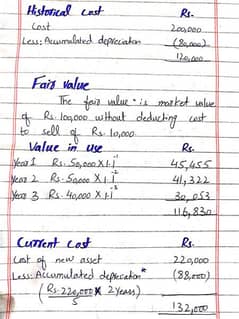 Historical Cost Rs.
Cost 200,000
Less: Accumulated depreciation (80,000)
120,000
Fair value
The fair value is market value
of Rs. 100,000 without deducting cost
to sell of Rs. 10,000.
Value in use Rs.
Year 1 Rs. 50,000 X 1.1⁻¹ 45,455
Year 2 Rs. 50,000 X 1.1⁻² 41,322
Year 3 Rs. 40,000 X 1.1⁻³ 30,053
116,830
Current Cost Rs.
Cost of new asset 220,000
Less: Accumulated depreciation* (88,000)
(Rs. 220,000 X 2 years)
5
132,000